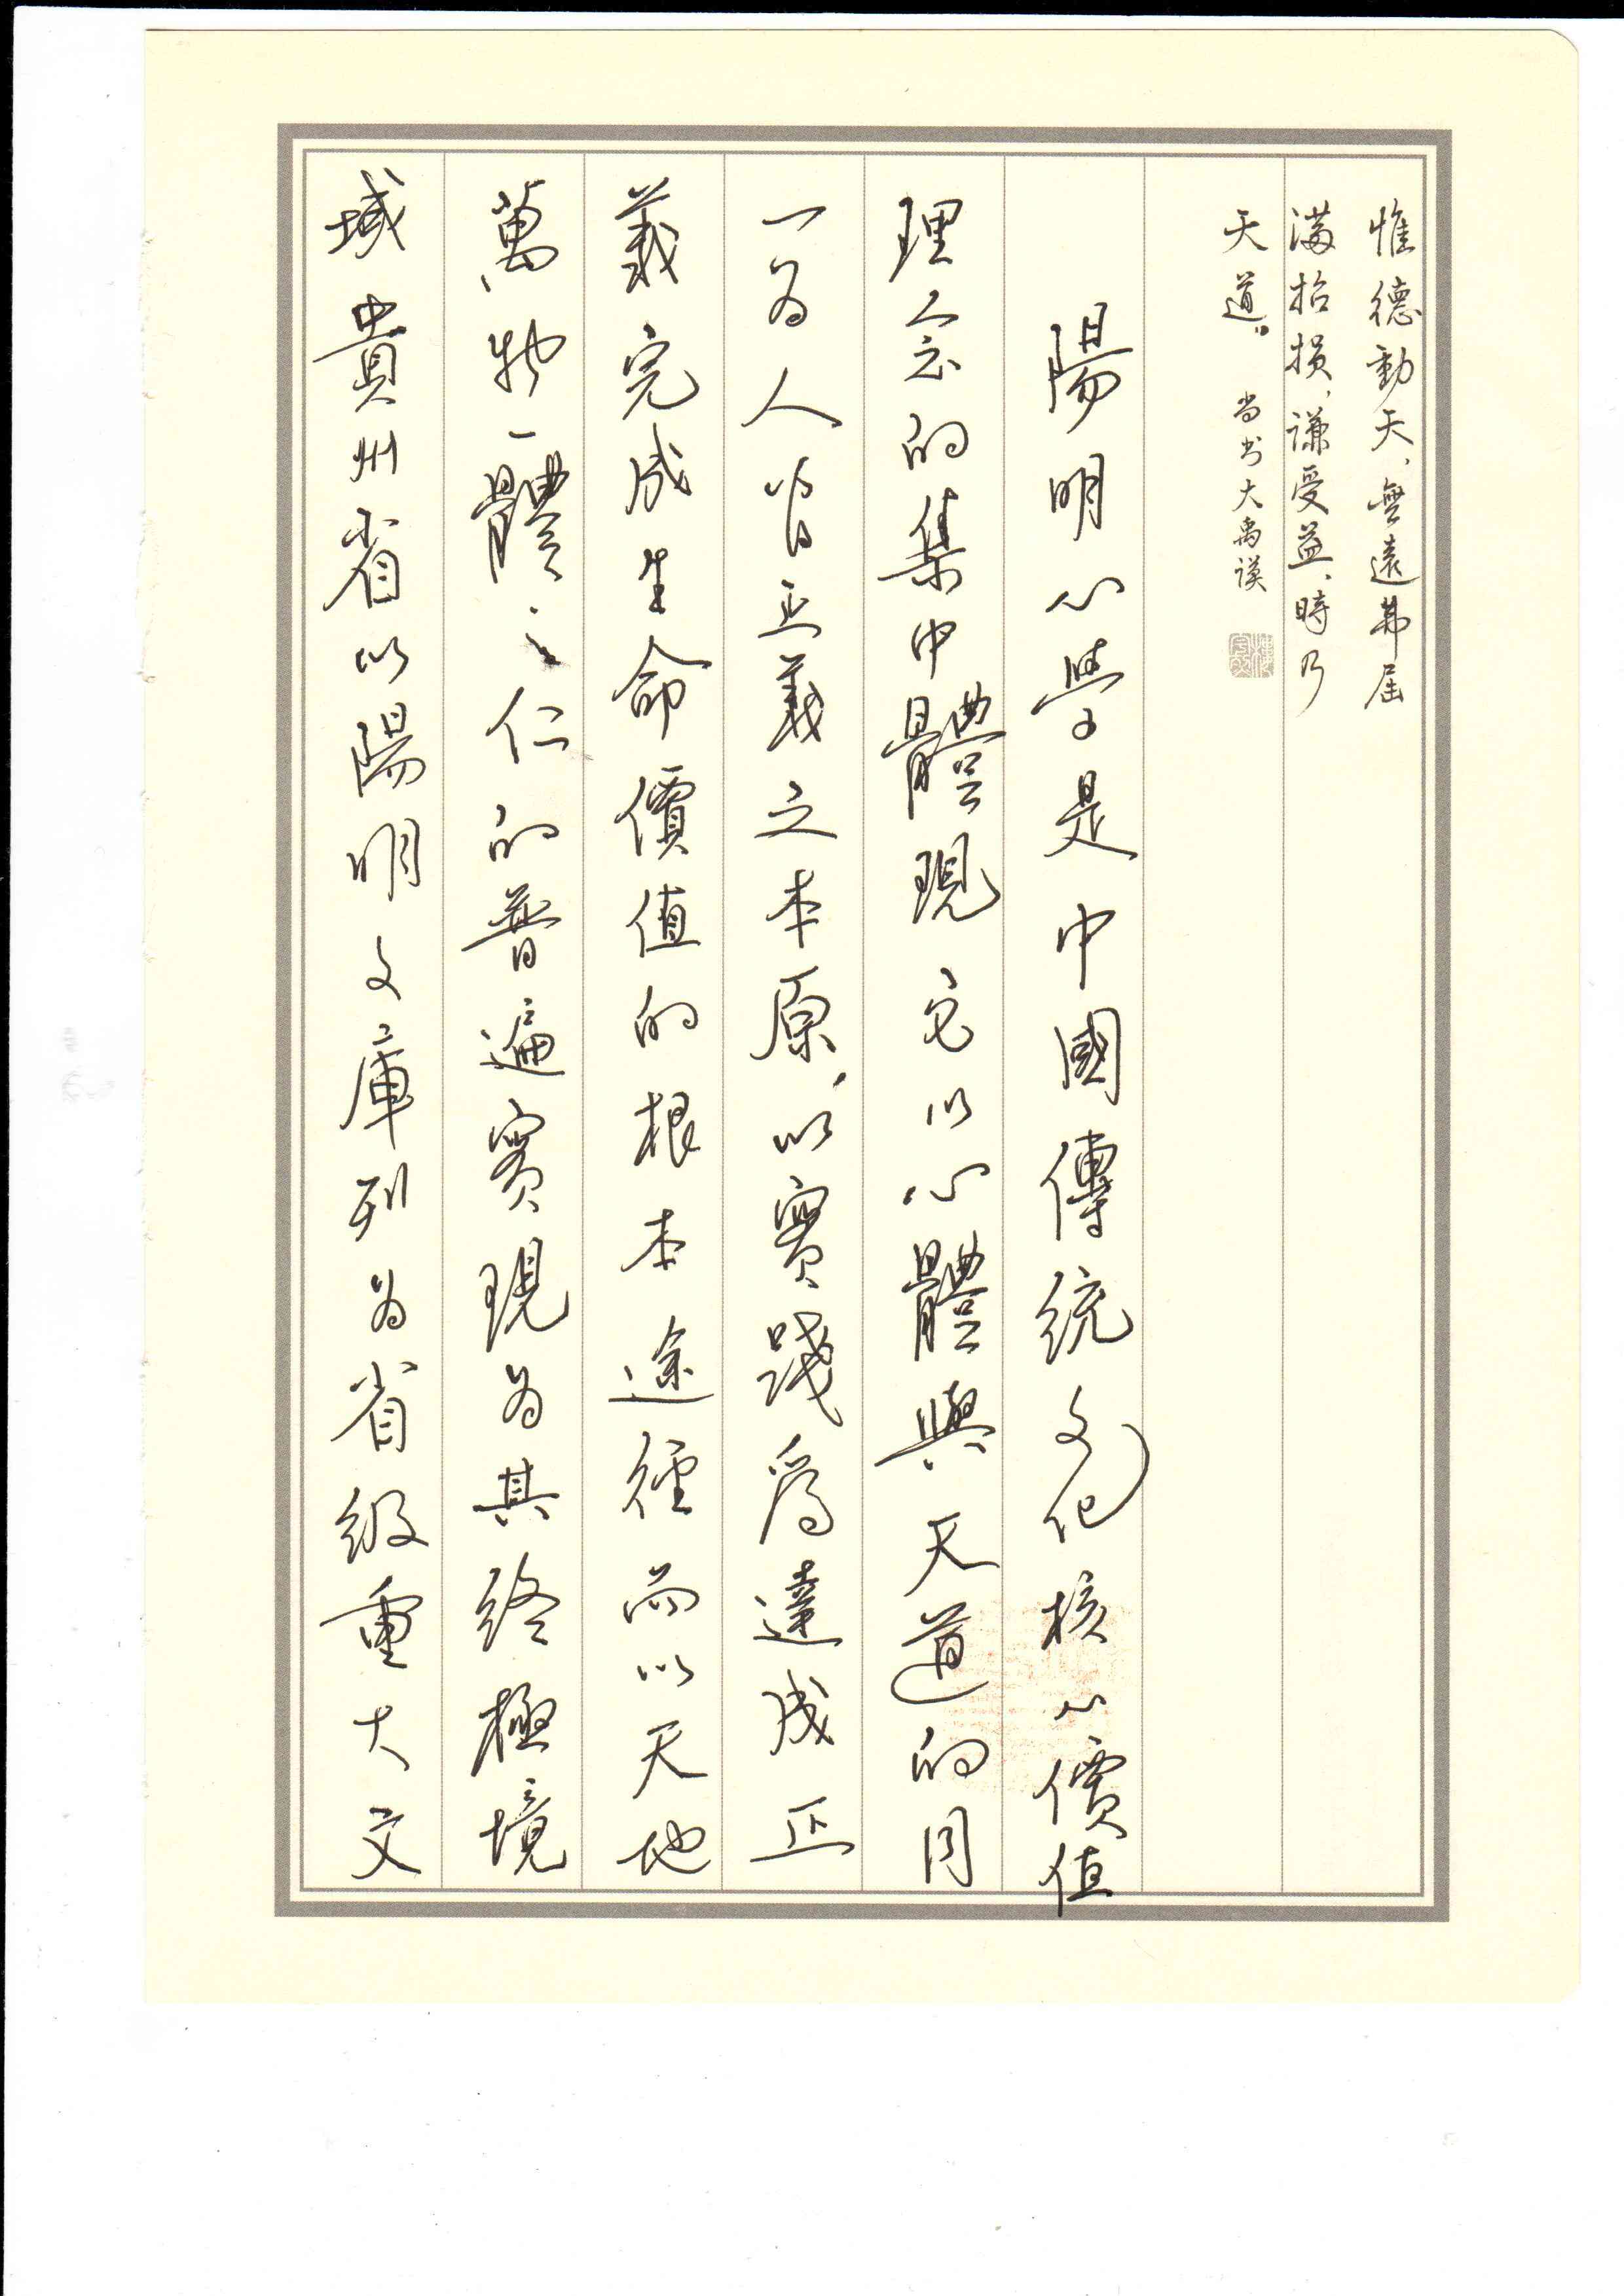 惟德動天，無遠弗届
满招損，谦受益，時乃
天道。 尚书大禹谟
陽明心學是中國傳統文化核心價值
理念的集中體現它以心體與天道的同
一为人皆正義之本原，以實踐爲達成正
義完成生命價值的根本途徑而以天地
萬物一體之仁的普遍實現为其終極境
域貴州省以陽明文庫列为省级重大文